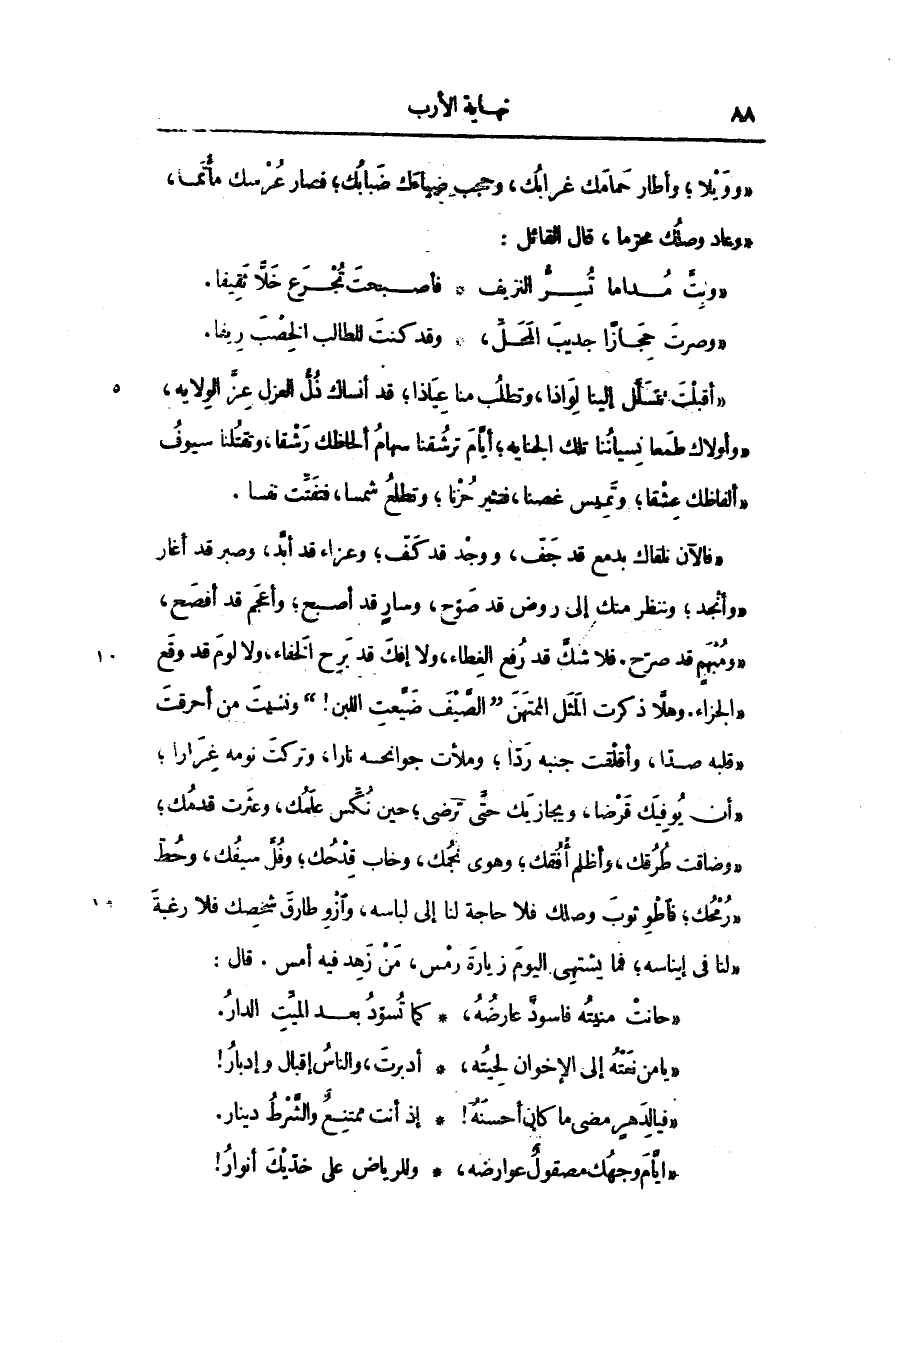 ٨٨ نهاية الأرب
«ووَيْلا؛ وأطار حَمامَك غرابُك، وحجب ضياءَك ضَبابُك؛ فصار عُرْسك مأْتَما،
«وعاد وصلُك محرّما، قال القائل :
«وبِتَّ مُداما تُسِرُّ النزيف * فأصبحتَ تُجْرَع خَلًّا ثَقِيفا.
«وصرتَ حِجَازًا جديبَ المَحَلّ، * وقد كنتَ للطالب الخِصْبَ رِيفا.
«أقبلْتَ تتسلَّل إلينا لِوَاذا، وتطلُب منا عِيَاذا؛ قد أنساك ذُلُّ العزل عِزَّ الولايه، ٥
«وأولاك طمَعا نِسيانُنا تلك الجنايه؛ أيَّامَ ترشُقنا سهامُ ألحاظك رَشْقا، وتقتُلنا سيوفُ
«ألفاظك عِشْقا؛ وتَمِيس غصنا، فتثير حُزْنا؛ وتطلُع شمسا، فتفَتِّت نفسا .
«فالآن نلقاك بدمع قد جَفّ، ووجْد قد كَفّ؛ وعزاء قد أبَّد، وصبر قد أغار
«وأنْجد؛ وننظر منك إلى روض قد صَوّح، وسارٍ قد أصبح؛ وأعجَم قد أفصَح،
«ومُبْهَمٍ قد صرّح. فلا شكَّ قد رُفِع الغِطاء، ولا إفكَ قد بَرِح الخفاء، ولا لومَ قد وقَع ١٠
«الجزاء. وهلَّا ذكرت المَثَل الممتَهَن ”الصَّيْفَ ضَيَّعتِ اللبن!“ ونسِيتَ من أحرقتَ
«قلبه صدّا، وأقلقت جنبه رَدّا؛ وملأت جوانحه نارا، وتركتَ نومه غِرَارا؛
«أن يُوفِيَك قَرْضا، ويجازيَك حتَّى ترضى؛ حين نُكِّس علَمُك، وعثَرت قدمُك؛
«وضاقت طُرُقك، وأظلم أُفُقك؛ وهوى نجمُك، وخاب قِدْحُك؛ وفُلّ سيفُك، وحُطّ
«رُمْحُك؛ فٱطْوِ ثوبَ وصلك فلا حاجة لنا إلى لباسه، وٱزْوِ طارقَ شخصِك فلا رغبةَ ١٥
«لنا فى إيناسه؛ فما يشتهِى اليومَ زيارةَ رمْس، مَنْ زَهِد فيه أمس . قال :
«حانتْ منيتُه فاسودَّ عارضُهُ، * كما تُسوّدُ بعد الميِّتِ الدارُ.
«يامن نَعَتْهُ إلى الإخوان لحيتُه، * أدبرتَ، والناسُ إقبال وإدبارُ!
«فيالِدَهرٍ مضى ما كان أحسنَهُ! * إذ أنت ممتنِعٌ والشَّرْطُ دينار.
«أيَّامَ وجهُك مصقولٌ عوارضه، * وللرياض على خدّيْكَ أنوارُ!